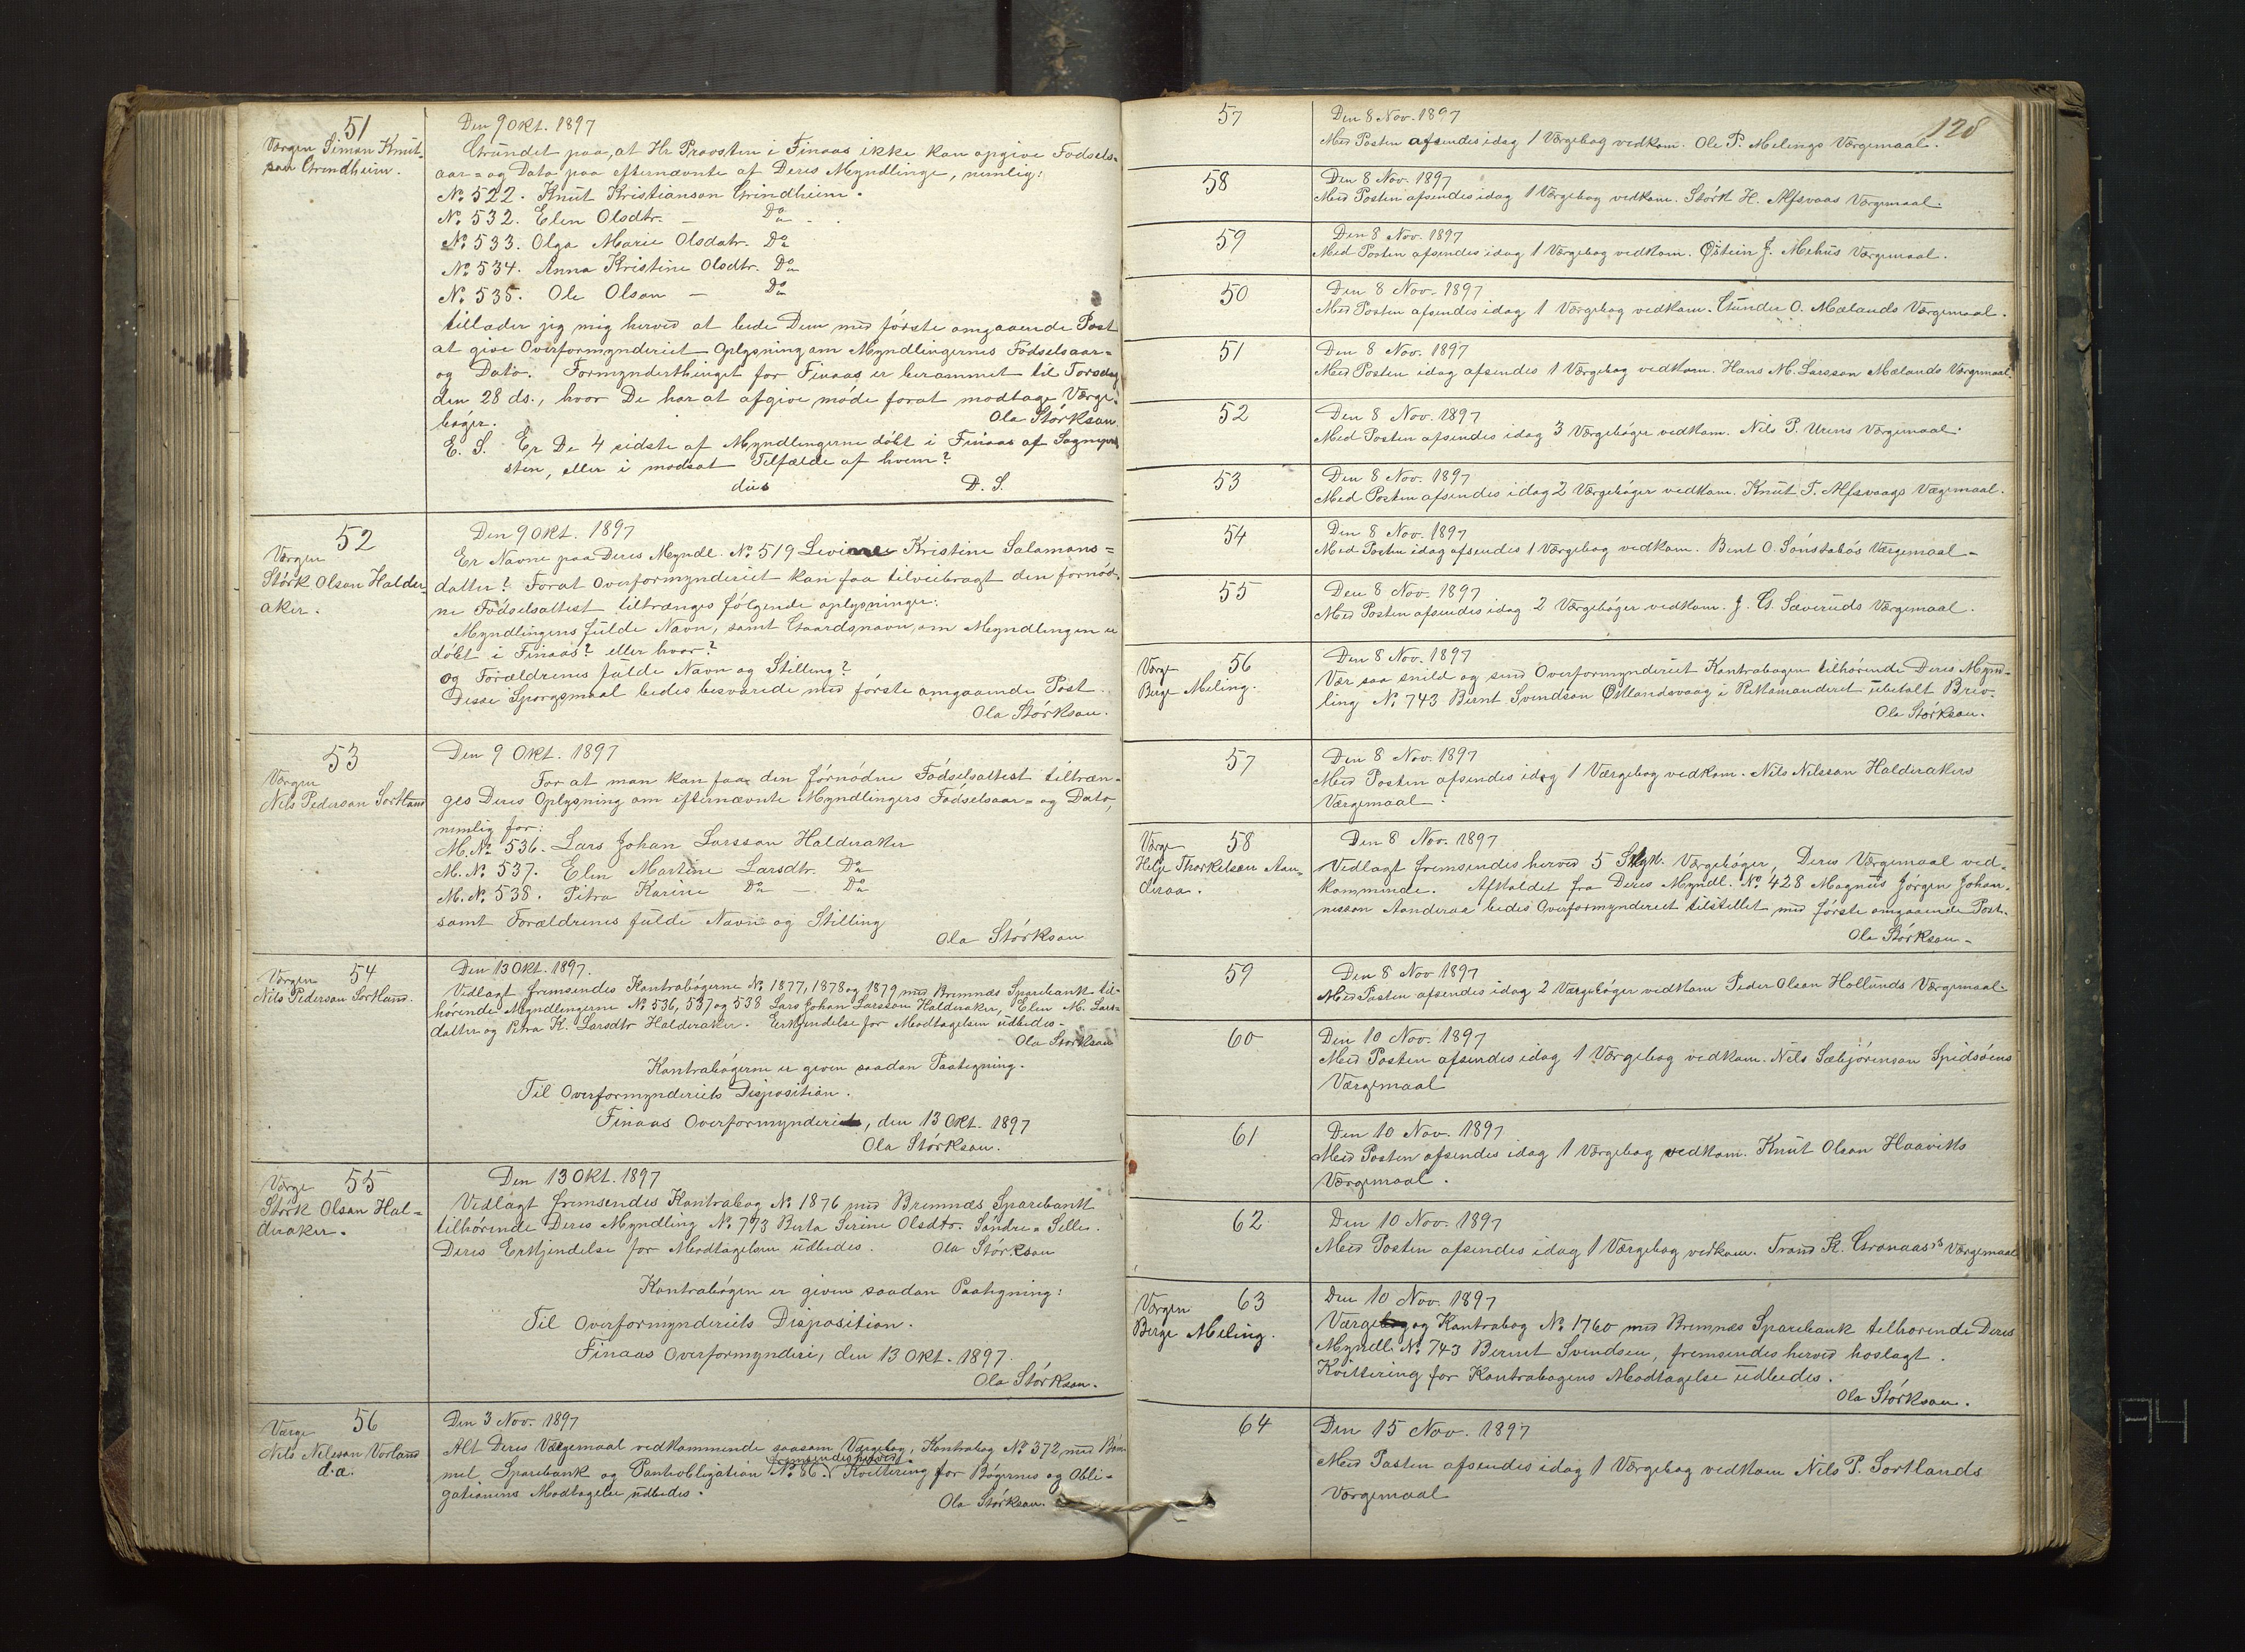 51
Værgen Simon Knut-
son Grindheim.
Den 9 Okt. 1897
Grundet paa, at Hr Provsten i Finaas ikke kan opgive Fødsels-
aar- og Dato paa efternævnte af Deres Myndlinge, nemlig:
No 522. Knut Kristianson Grindheim.
No 532. Elen Olsdtr. — Do
No 533. Olga Marie Olsdatr. Do
No 534. Anna Kristine Olsdtr. Do
No 535. Ole Olson — Do
tillader jeg mig herved at bede Dem med første omgaaende Post
at give Overformynderiet Oplysning om Myndlingernes Fødselsaar-
og Dato. Formynderthinget for Finaas er berammet til Torsdag
den 28 ds., hvor De har at afgive møde forat modtage Værge-
bøger.
Ola Størkson.
E. S. Er De 4 sidste af Myndlingerne døbt i Finaas af Sognepre
sten, eller i modsat Tilfælde af hvem?
dus D. S.
52
Værgen
Størk Olson Halder-
aker.
Den 9 Okt. 1897
Er Navne paa Deres Myndl. No 519 Levine Kristine Salamons-
datter? Forat Overformynderiet kan faa tilveibragt den fornød-
ne Fødselsattest tiltrænges følgende oplysninger:
Myndlingens fulde Navn, samt Gaardsnavn, om Myndlingen er
døbt i Finaas? eller hvor?
og Forældrenes fulde Navn og Stilling?
Disse Spørgsmaal bedes besvarede med første omgaaende Post.
Ola Størkson.
53
Værgen
Nils Pederson Sortland
Den 9 Okt. 1897
For at man kan faa den fórnødne Fødselsattest tiltræn-
ges Deres Oplysning om efternævnte Myndlingers Fødselsaar- og Dato,
nemlig for:
M. No 536. Lars Johan Larsson Halderaker
M. No 537. Elen Martine Larsdtr. Do
M. No 538. Petra Karine Do — Do
samt Forældrenes fulde Navn og Stilling
Ola Størkson
54
Værgen
Nils Pederson Sortland.
Den 13 Okt. 1897.
Vedlagt fremsendes Kontrabøgerne No 1877, 1878 og 1879 med Bremnæs Sparebank til-
hørende Myndlingerne No 536, 537 og 538 Lars Johan Larsson Halderaker, Elen M. Lars-
datter og Petra K. Larsdtr Halderaker. Erkjendelse for Modtagelsen udbedes.
Ola Størkson
Kontrabøgerne er given saadan Paategning.
Til Overformynderiets Disposition.
Finaas Overformynderi, den 13 Okt. 1897
Ola Størkson.
55
Værge
Størk Olson Hal-
deraker.
Den 13 Okt. 1897
Vedlagt fremsendes Kontrabog No 1876 med Bremnæs Sparebank
tilhørende Deres Myndling No 773 Berta Serine Olsdtr. Søndre-Selle.
Deres Erkjendelse for Modtagelsen udbedes. Ola Størkson
Kontrabogen er given saadan Paategning:
Til Overformynderiets Disposition.
Finaas Overformynderi, den 13 Okt. 1897.
Ola Størkson.
56
Værge
Nils Nilsson Vorland
d.æ.
Den 3 Nov. 1897
Alt Deres Værgemaal vedkommende saasom Værgebog, Kontrabog No 372 med Bøm-
mel Sparebank og Pantobligation No 86. fremsendes herved. Kvittering for Bøgernes og Obli-
gationens Modtagelse udbedes.
Ola Størkson.
128
57
Den 8 Nov. 1897
Med Posten afsendes idag 1 Værgebog vedkom. Ole P. Melings Værgemaal.
58
Den 8 Nov. 1897
Med Posten afsendes idag 1 Værgebog vedkom. Størk H. Alfsvaas Værgemaal.
59
Den 8 Nov. 1897
Med Posten afsendes idag 1 Værgebog vedkom. Østein J. Mehus Værgemaal.
50
Den 8 Nov. 1897
Med Posten afsendes idag 1 Værgebog vedkom. Gunder O. Mælands Værgemaal.
51
Den 8 Nov. 1897
Med Posten idag afsendes 1 Værgebog vedkom. Hans M. Larsson Mælands Værgemaal.
52
Den 8 Nov. 1897
Med Posten afsendes idag 3 Værgebøger vedkom. Nils P. Urens Værgemaal.
53
Den 8 Nov. 1897
Med Posten afsendes idag 2 Værgebøger vedkom. Knut T. Alfsvaags Vægemaal.
54
Den 8 Nov. 1897
Med Posten idag afsendes 1 Værgebog vedkom. Bent O. Sønstabøs Værgemaal
55
Den 8 Nov. 1897
Med Posten afsendes idag 2 Værgebøger vedkom. J. G. Sæveruds Værgemaal.
Værge 56
Berge Meling.
Den 8 Nov. 1897
Vær saa snild og send Overformynderiet Kontrabogen tilhørende Deres Mynd-
ling No 743 Bernt Svendson Østlandsvaag i Rekomanderet ubetalt Brev.
Ola Størkson.
57
Den 8 Nov. 1897
Med Posten afsendes idag 1 Værgebog vedkom. Nils Nilsson Halderakers
Værgemaal.
Værge 58
Helje Thorkelson Aan-
deraa.
Den 8 Nov. 1897
Vedlagt fremsendes herved 5 Stk. Værgebøger, Deres Værgemaal ved-
kommende. Afkaldet fra Deres Myndl. No 428 Magnus Jørgen Johan-
nesson Aanderaa bedes Overformynderiet tilstillet med første omgaaende Post.
Ola Størkson.
59
Den 8 Nov 1897
Med Posten afsendes idag 2 Værgebøger vedkom Peder Olson Hollunds Værgemaal.
60
Den 10 Nov. 1897
Med Posten afsendes idag 1 Værgebog vedkom. Nils Sæbjørnson Spidsøens
Værgemaal
61
Den 10 Nov. 1897
Med Posten afsendes idag 1 Værgebog vedkom. Knut Olson Haaviks
Værgemaal.
62
Den 10 Nov. 1897
Med Posten afsendes idag 1 Værgebog vedkom. Trond K. Gronaas's Værgemaal
Værgen 63
Berge Meling.
Den 10 Nov. 1897
Værgebog og Kontrabog No 1760 med Bremnes Sparebank tilhorende Deres
Myndl. No 743 Bernt Svendsen, fremsendes herved hoslagt.
Kvittering for Kontrabogens Modtagelse udbedes.
Ola Størkson.
64
Den 15 Nov. 1897
Med Posten afsendes idag 1 Værgebog vedkom Nils P. Sortlands
Værgemaal